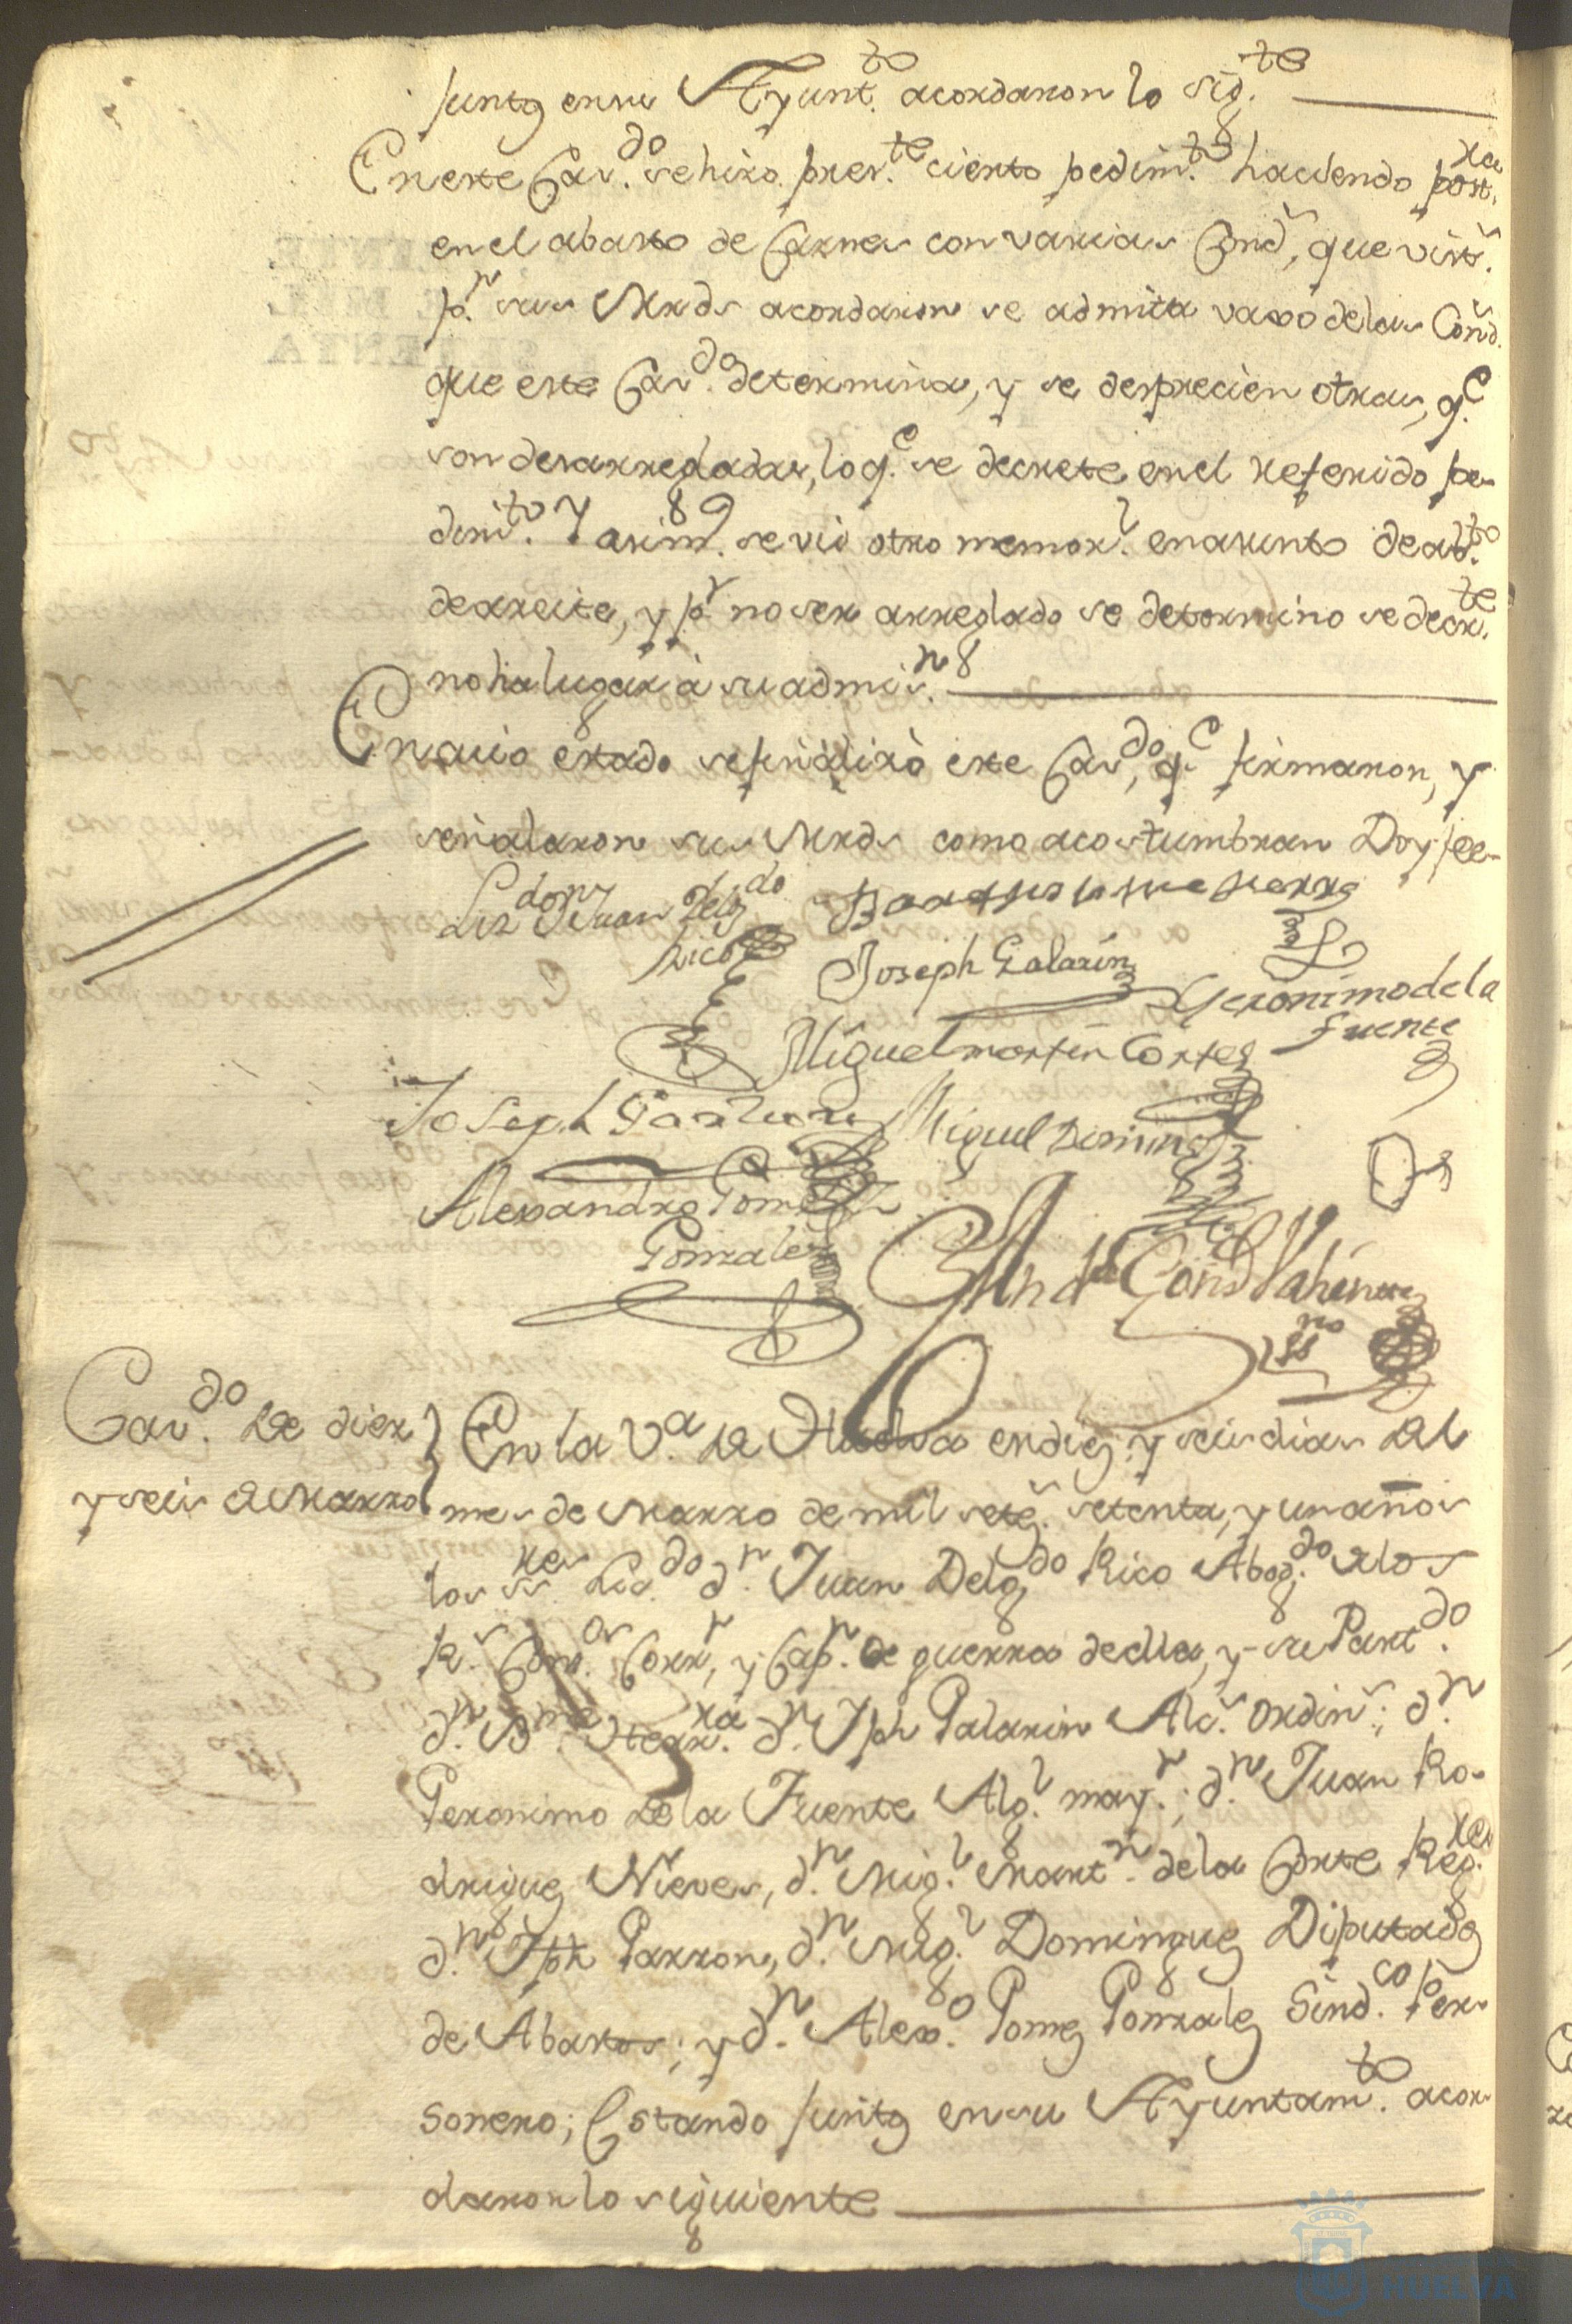 juntos en su Ayunt.to acordaron lo sig.te
En este Cav.do se hizo pres.te cierto pedim.to haciendo post.ra
en el abasto de Carnes con varias Cond.s, que vist.s
p.r sus Mrds acordaron se admita vaxo de las Cond.s
que este Cav.do determina, y se desprecien otras, q.e
son desarregladas, lo q.e se decrete en el referido pe-
dim.to Y asim.o se vió otro memor.l en asunto de ab.to
de azeite, y p.r no ser arreglado se determino se decr.te
no ha lugar à su admis.n
En cuio estado se finalizò este Cav.do, q.e firmaron, y
señalaron sus Mrds como acostumbran Doy fee-
Lizdo Dn Juan Delg.do
Rico
Joseph Galazin
Geronimo de la
Fuente
Miguel martin Cortes
Joseph Garzon
Miguel Doming.z
Alexandro Gomez
Gonzalez
Cav.do de diez
y seis de Marzo
En la V.a de Huelva en diez, y seis dias del
mes de Marzo de mil sete.s setenta, y un años
los ss.res Lic.do d.n Juan Delg.do Rico Abog.do de los
R.s Cons.os Corr.r, y Cap.n de guerra de ella, y su Part.do
d.n B.me Herr.ra d.n Jph Galazin Alc.s ordin.s; d.n
Geronimo de la Fuente Alg.l may.r; d.n Juan Ro-
driguez Nieves, d.n Mig.l Mart.n de la Corte Reg.res
d.n Jph Garzon, d.n Mig.l Dominguez Diputados
de Abastos; y d.n Alex.o Gomez Gonzalez Sind.co Per-
sonero; Estando juntos en su Ayuntam.to acor-
daron lo siguiente
HUELVA